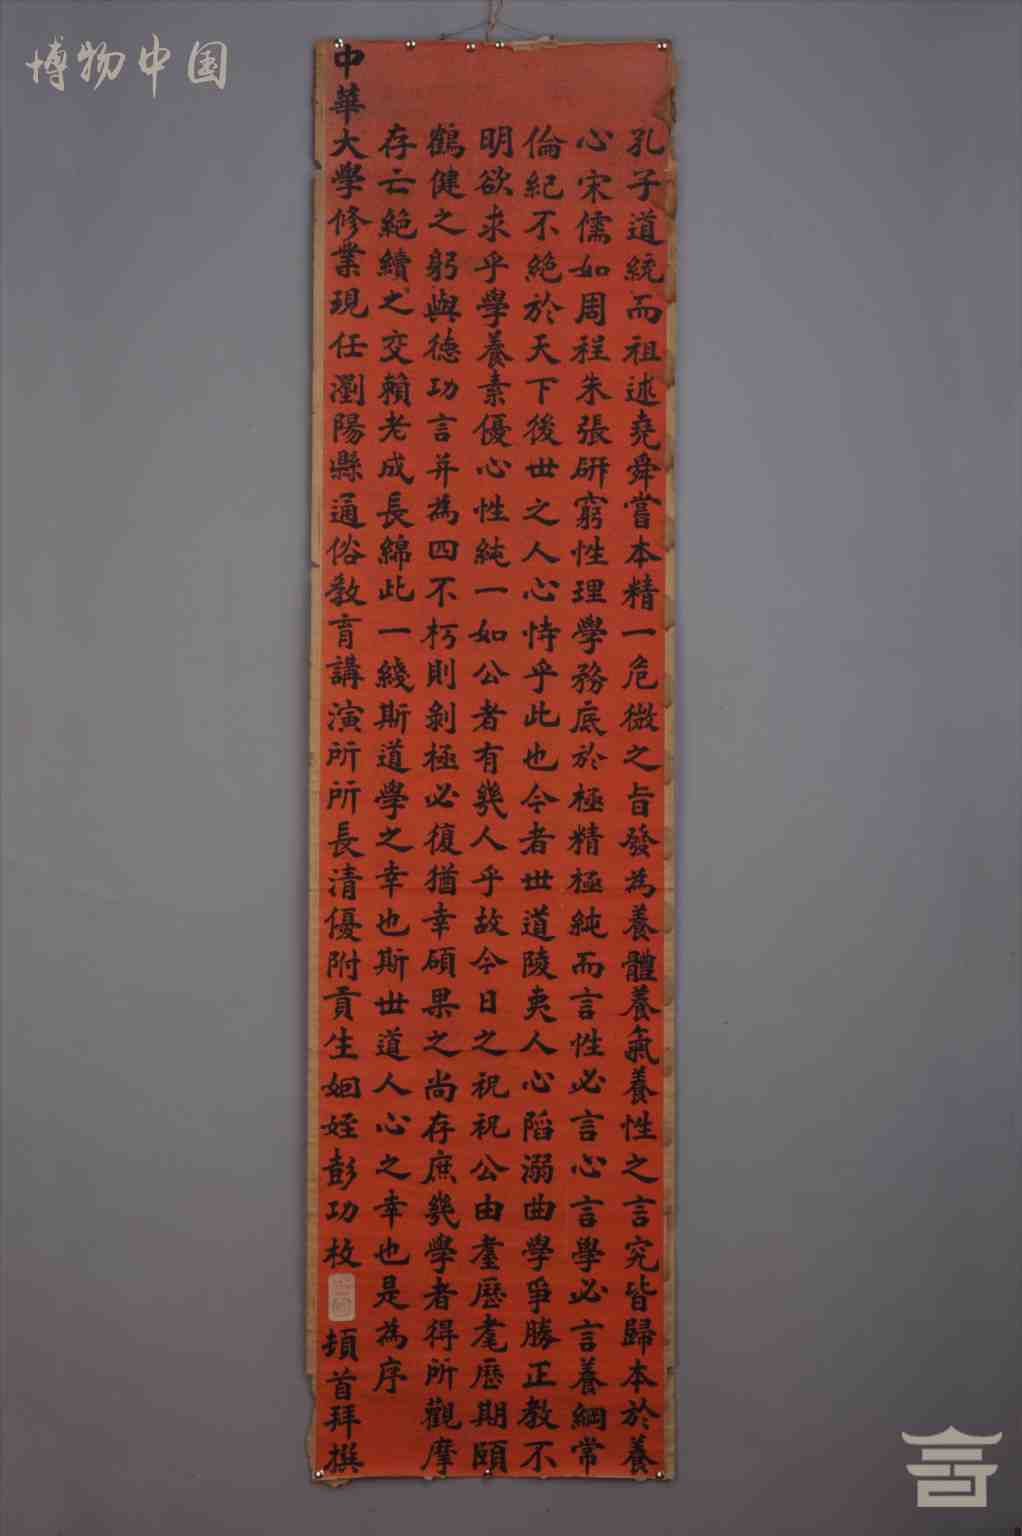 博物中国
孔子道統而祖述堯舜嘗本精一危微之旨發為養體養氣養性之言究皆歸本於養
心宋儒如周程朱張研窮性理學務底於極精極純而言性必言心言學必言養綱常
倫紀不絕於天下後世之人心恃乎此也今者世道陵夷人心陷溺曲學爭勝正教不
明欲求乎學養素優心性純一如公者有幾人乎故今日之祝祝公由耋歷耄歷期頤
鶴健之躬與德功言并為四不朽則剝極必復猶幸碩果之尚存庶幾學者得所觀摩
存亡絕續之交賴老成長綿此一綫斯道學之幸也斯世道人心之幸也是為序
中華大學修業現任瀏陽縣通俗教育講演所所長清優附貢生姻姪彭功枚 頓首拜撰